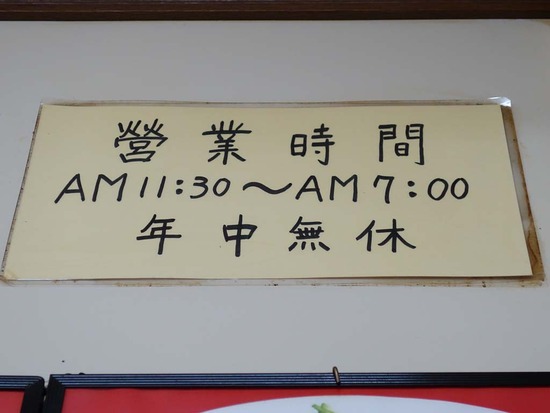 營業時間
AM11:30〜AM7:00
年中無休